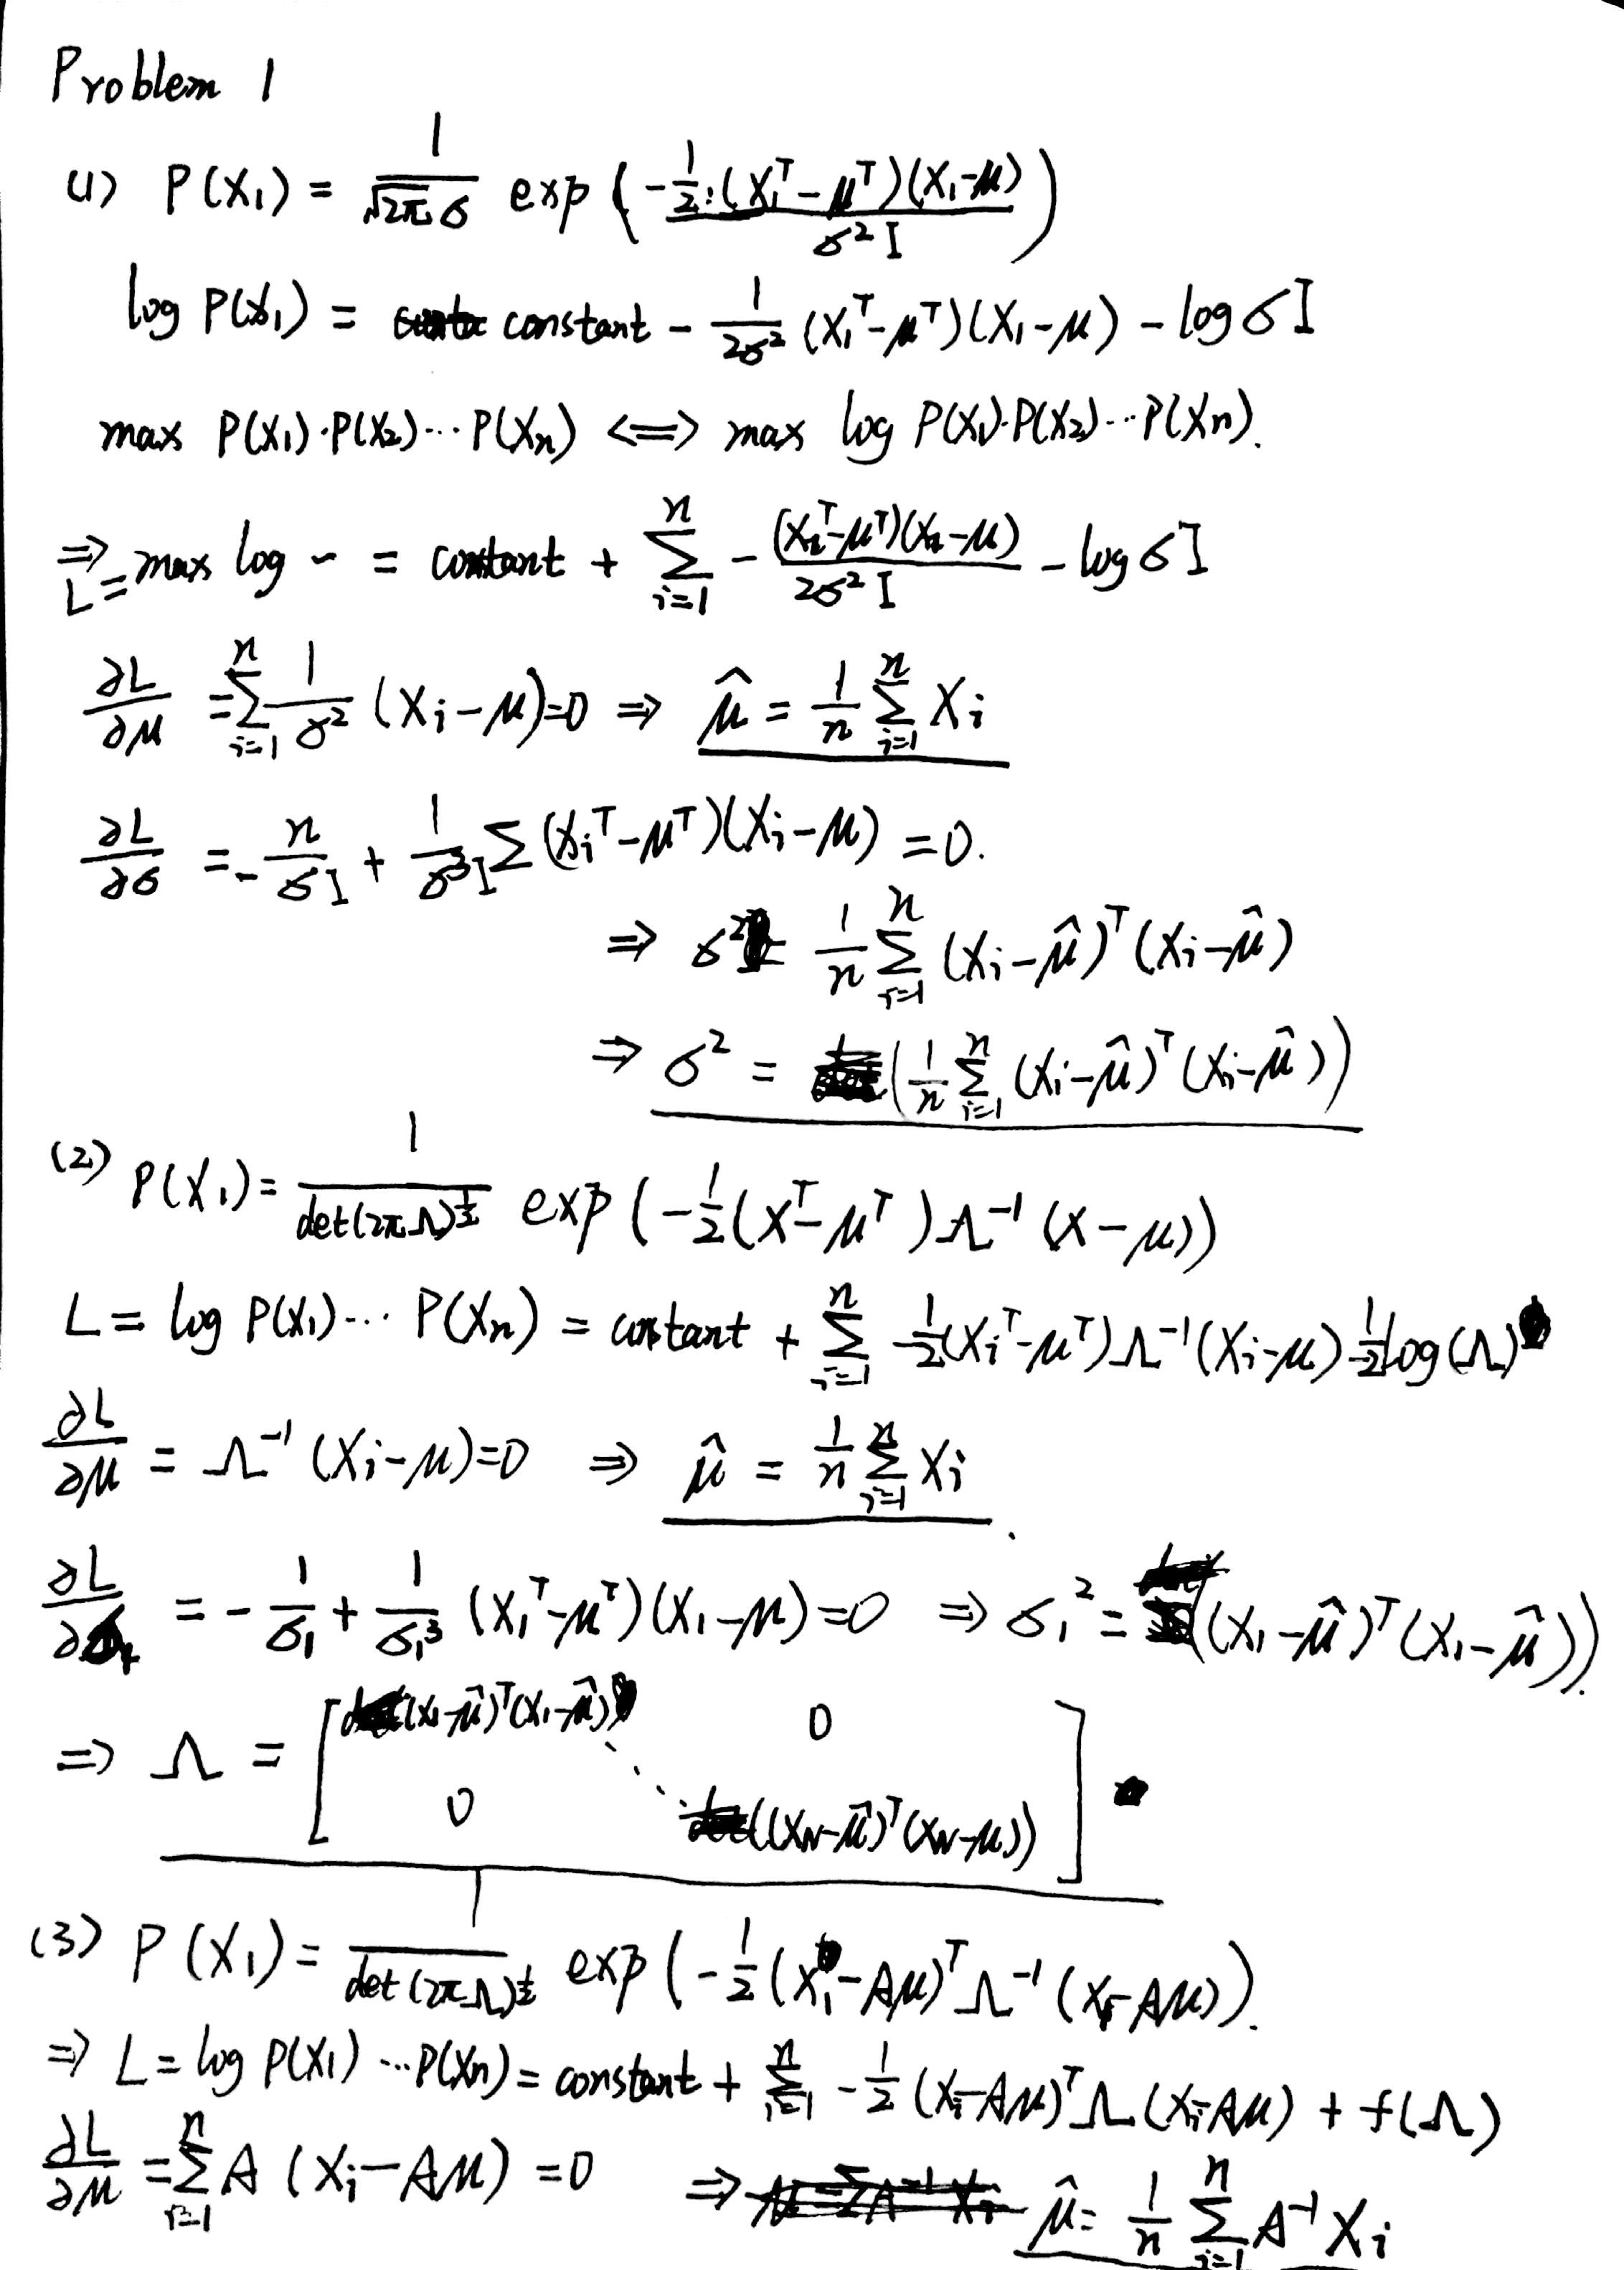 Problem 1
(1) P(X₁) = 1/(√2π σ) exp(-½·(X₁ᵀ-μᵀ)(X₁-μ)/(σ²I))
log P(X₁) = constant - 1/(2σ²) (X₁ᵀ-μᵀ)(X₁-μ) - log σI
max P(X₁)·P(X₂)···P(Xn) <=> max log P(X₁)·P(X₂)···P(Xn).
⇒ L = max log ~ = constant + Σ_{i=1}^{n} - (Xiᵀ-μᵀ)(Xi-μ)/(2σ²I) - log σI
∂L/∂μ = Σ_{i=1}^{n} 1/σ² (Xi-μ)=0 ⇒ μ̂ = 1/n Σ_{i=1}^{n} Xi
∂L/∂σ = -n/(σI) + 1/(σ³I) Σ (Xiᵀ-μᵀ)(Xi-μ) = 0.
⇒ σ² 1/n Σ_{i=1}^{n} (Xi-μ̂)ᵀ(Xi-μ̂)
⇒ σ² = (1/n Σ_{i=1}^{n} (Xi-μ̂)ᵀ(Xi-μ̂))
(2) P(X₁) = 1/det(2πΛ)^½ exp(-½(Xᵀ-μᵀ)Λ⁻¹(X-μ))
L = log P(X₁)··· P(Xn) = constant + Σ_{i=1}^{n} -½(Xiᵀ-μᵀ)Λ⁻¹(Xi-μ) -½log(Λ)
∂L/∂μ = Λ⁻¹(Xi-μ)=0 ⇒ μ̂ = 1/n Σ_{i=1}^{n} Xi
∂L/∂σ₁ = -1/σ₁ + 1/σ₁³ (X₁ᵀ-μᵀ)(X₁-μ)=0 ⇒ σ₁² = ((X₁-μ̂)ᵀ(X₁-μ̂)).
⇒ Λ = [(X₁-μ̂)ᵀ(X₁-μ̂) 0
0 ((XN-μ̂)ᵀ(XN-μ))]
(3) P(X₁) = 1/det(2πΛ)^½ exp(-½(X₁-Aμ)ᵀΛ⁻¹(X₁-Aμ)).
⇒ L = log P(X₁)···P(Xn) = constant + Σ_{i=1}^{n} -½(Xi-Aμ)ᵀΛ(Xi-Aμ) + f(Λ)
∂L/∂μ = Σ_{i=1}^{n} A(Xi-Aμ) = 0 ⇒ μ̂ = 1/n Σ_{i=1}^{n} A⁻¹Xi